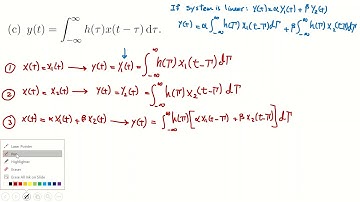 If System is linear: y(t) = αy₁(t) + βy₂(t)
(c) y(t) = ∫_{-∞}^{∞} h(τ)x(t − τ) dτ.
y(t) = α∫_{-∞}^{∞} h(τ) x₁(t-τ)dτ + β∫_{-∞}^{∞} h(τ) x₂(t-τ)dτ
① x(t) = x₁(t) → y(t) = y₁(t) = ∫_{-∞}^{∞} h(τ) x₁(t-τ) dτ
② x(t) = x₂(t) → y(t) = y₂(t) = ∫_{-∞}^{∞} h(τ) x₂(t-τ) dτ
③ x(t) = αx₁(t) + βx₂(t) → y(t) = ∫_{-∞}^{∞} h(τ)[αx₁(t-τ) + βx₂(t-τ)] dτ
Laser Pointer
Pen
Highlighter
Eraser
Erase All Ink on Slide